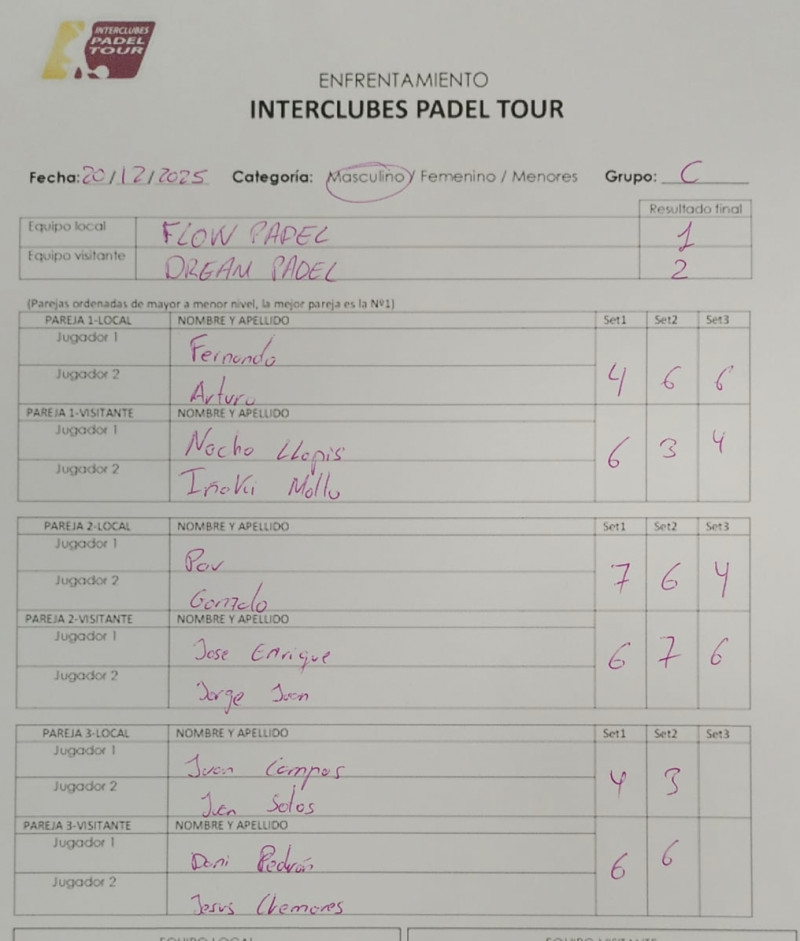 INTERCLUBES
PADEL
TOUR
ENFRENTAMIENTO
INTERCLUBES PADEL TOUR
Fecha: 20/12/2025 Categoría: Masculino / Femenino / Menores Grupo: C
Resultado final
Equipo local FLOW PADEL 1
Equipo visitante DREAM PADEL 2
(Parejas ordenadas de mayor a menor nivel, la mejor pareja es la Nº1)
PAREJA 1-LOCAL NOMBRE Y APELLIDO Set1 Set2 Set3
Jugador 1 Fernando
Jugador 2 Arturo
4 6 6
PAREJA 1-VISITANTE NOMBRE Y APELLIDO
Jugador 1 Nacho Llopis
Jugador 2 Iñaki
6 3 4
PAREJA 2-LOCAL NOMBRE Y APELLIDO Set1 Set2 Set3
Jugador 1 Pau
Jugador 2 Gonzalo
7 6 4
PAREJA 2-VISITANTE NOMBRE Y APELLIDO
Jugador 1 Jose Enrique
Jugador 2 Jorge Juan
6 7 6
PAREJA 3-LOCAL NOMBRE Y APELLIDO Set1 Set2 Set3
Jugador 1 Juan Campos
Jugador 2 Juan Solos
4 3
PAREJA 3-VISITANTE NOMBRE Y APELLIDO
Jugador 1 Dani
Jugador 2 Jesus
6 6